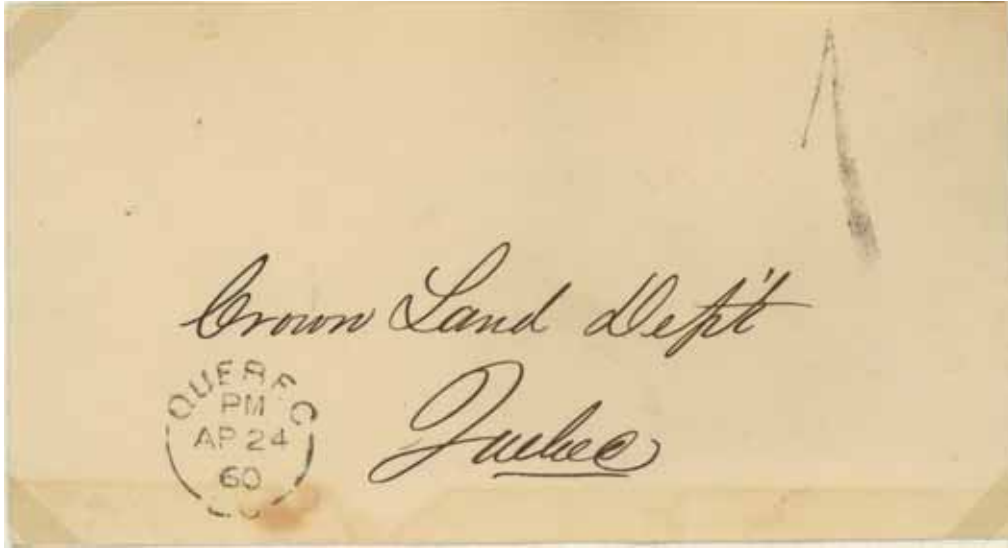 1
Crown Land Dep't
Quebec
QUEBEC
PM
AP 24
60